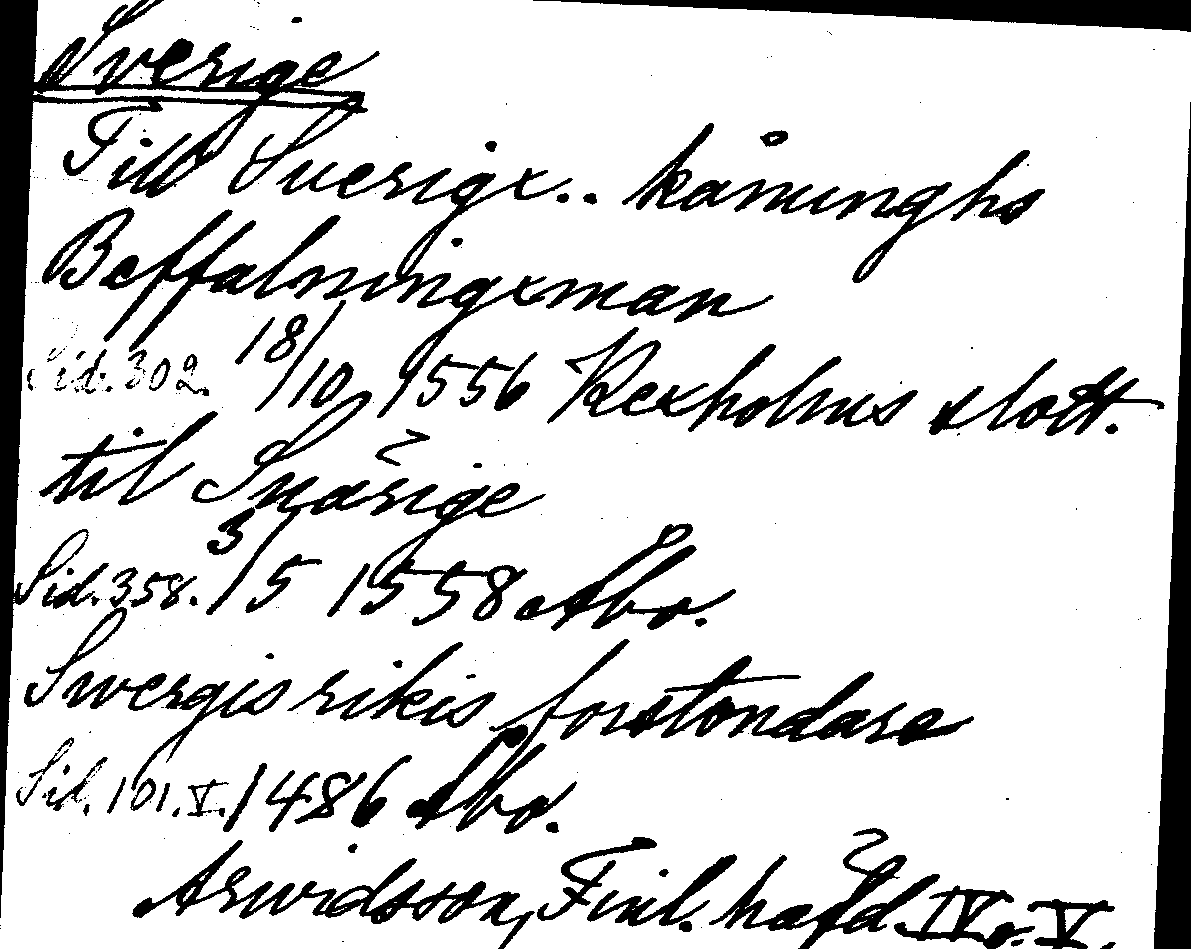 Sverige
Till Suerigx.. kånunghs
Beffalningxman
Sid. 302. 18/10 1556 Kexholms slott.
til Suärige
Sid. 358. 3/5 1558 Åbo.
Swergis rikis forstondare
Sid. 101. V. 1486 Åbo.
Arwidsson, Finl. häfd. IV o. V.